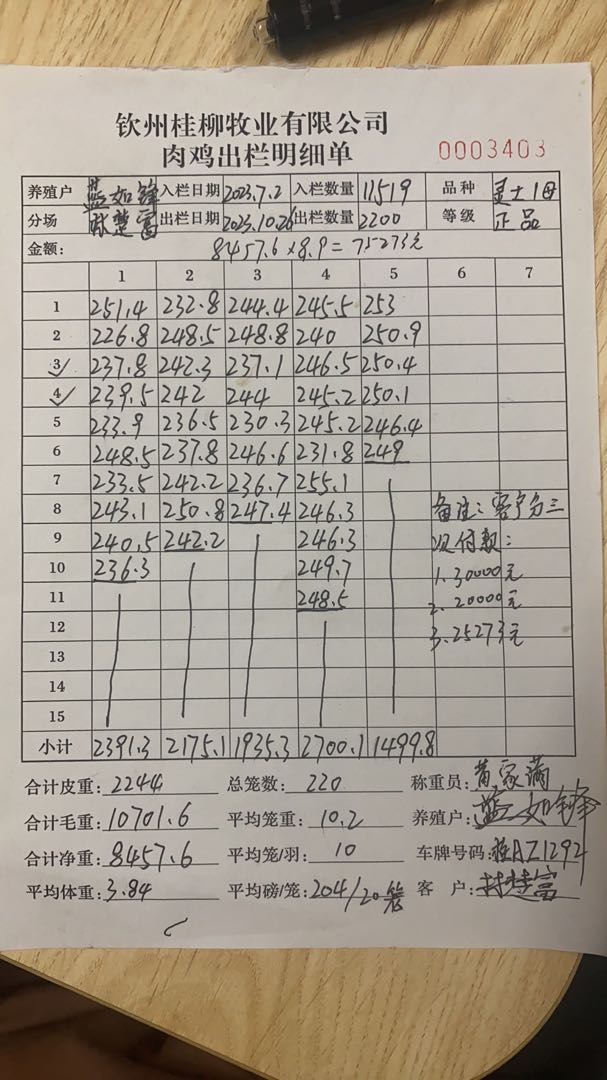 钦州桂柳牧业有限公司
肉鸡出栏明细单 0003403
养殖户 蓝如锋 入栏日期 2023.7.2 入栏数量 11519 品种 灵士1母
分场 林楚富 出栏日期 2023.10.26 出栏数量 2200 等级 正品
金额: 8457.6×8.9=75273元
1 2 3 4 5 6 7
1 251.4 232.8 244.4 245.5 253
2 226.8 248.5 248.8 240 250.9
3 237.8 242.3 237.1 246.5 250.4
4 239.5 242 244 245.2 250.1
5 233.9 236.5 230.3 245.2 246.4
6 248.5 237.8 246.6 231.8 249
7 233.5 242.2 236.7 255.1
8 243.1 250.8 247.4 246.3 备注:客户分三
9 240.5 242.2 246.3 次付款:
10 236.3 249.7 1.30000元
11 248.5 2.20000元
12 3.25273元
13
14
15
小计 2391.3 2175.1 1935.3 2700.1 1499.8
合计皮重: 2244 总笼数: 220 称重员: 黄家满
合计毛重: 10701.6 平均笼重: 10.2 养殖户: 蓝如锋
合计净重: 8457.6 平均笼/羽: 10 车牌号码: 桂AZ1292
平均体重: 3.84 平均磅/笼: 204/20笼 客 户: 林楚富